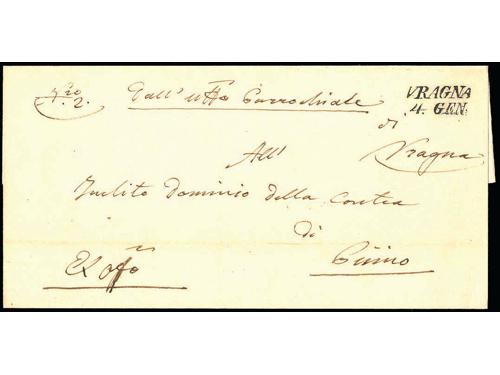 Nro 2.
Dall' uffo Parrochiale
VRAGNA
4. GEN.
di
Vragna
All'
Inclito Dominio della Contea
di
Ex offo